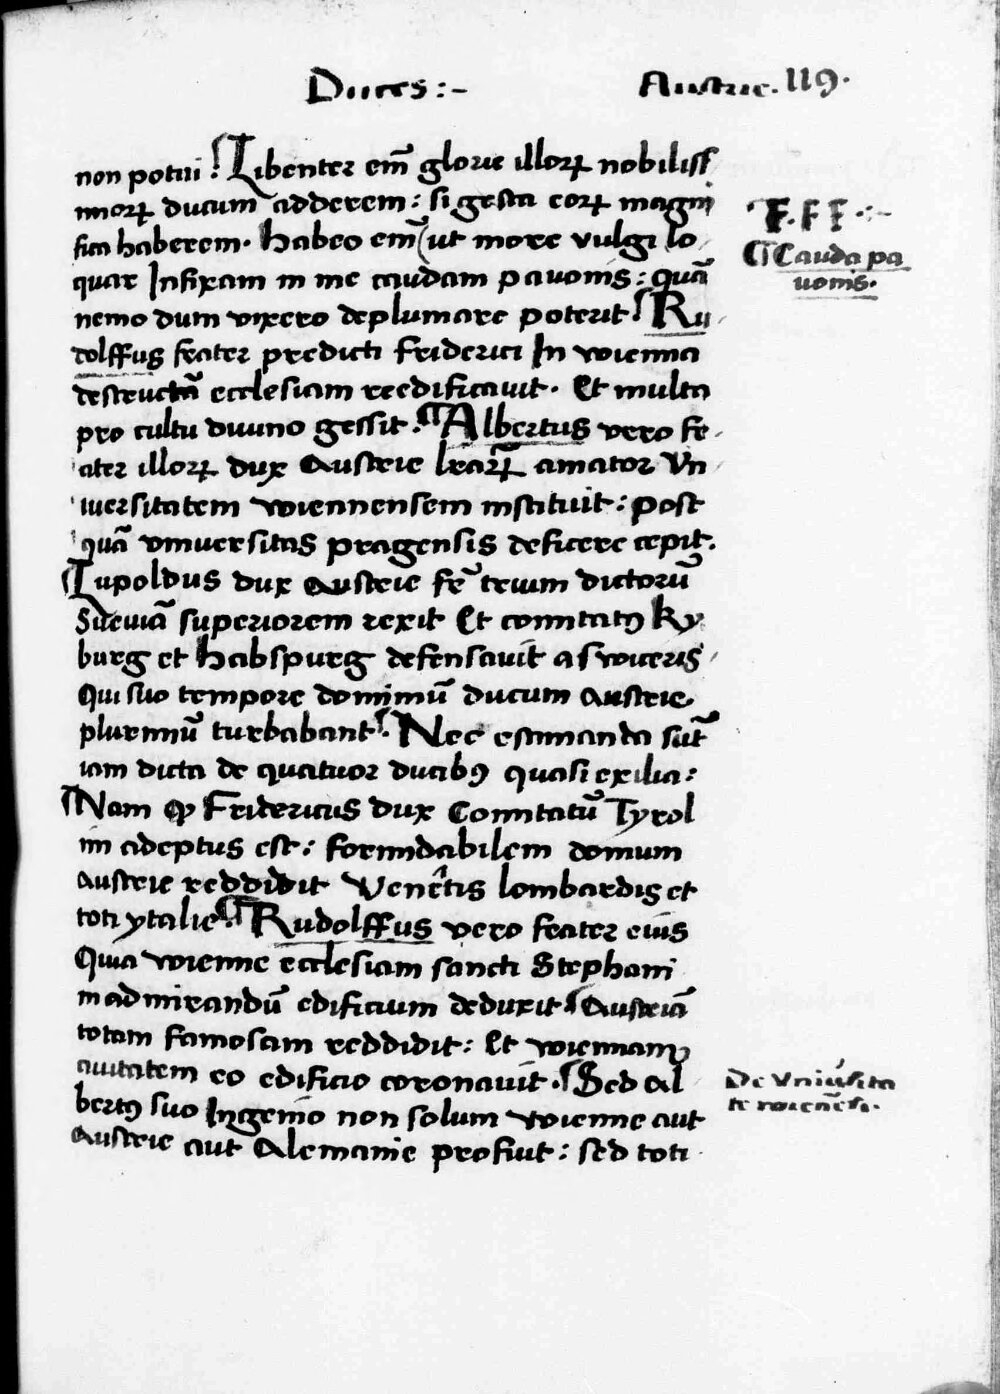 Duces :-
Austrie. 119.
non potui ¶ Libenter em̄ glorie illoꝝ nobiliss
imoꝝ ducum adderem : si gesta eoꝝ magni
fica haberem. Habeo em̄ (ut more vulgi lo
quar Infixam in me caudam pavonis : quā
nemo dum vixero deplumare poterit ¶ Ru
dolffus frater predicti Friderici In wienna
destructā ecclesiam reedificavit. Et multa
pro cultu divino gessit. ¶ Albertus vero fr
ater illoꝝ dux Austrie lr̄aꝝ amator Vn
iversitatem wiennensem instituit : post
quā vniversitas pragensis deficere cepit.
¶ Lupoldus dux Austrie fr̄ trium dictorū
Sueviā superiorem rexit Et comitatꝰ Ky
burg et Habspurg defensavit a Swiceris
Qui suo tempore dominiū ducum Austrie
plurimū turbabant ¶ Nec estimanda sūt
iam dicta de quatuor ducibꝰ quasi exilia :
¶ Nam ꝙ Fridericus dux Comitatū Tyrol
im adeptus est : formidabilem domum
Austrie reddidit Venētis lombardis et
toti ytalie ¶ Rudolffus vero frater eius
Quia wienne ecclesiam sancti Stephani
in admirandū edificium deduxit ¶ Austriā
totam famosam reddidit : Et wiennam
civitatem eo edificio coronavit. ¶ Sed Al
bertꝰ suo Ingenio non solum wienne aut
Austrie aut Alemanie profuit : sed toti
F.FF.:-
¶ Cauda pa
vonis.
De Vniūsita
te wienēsi.